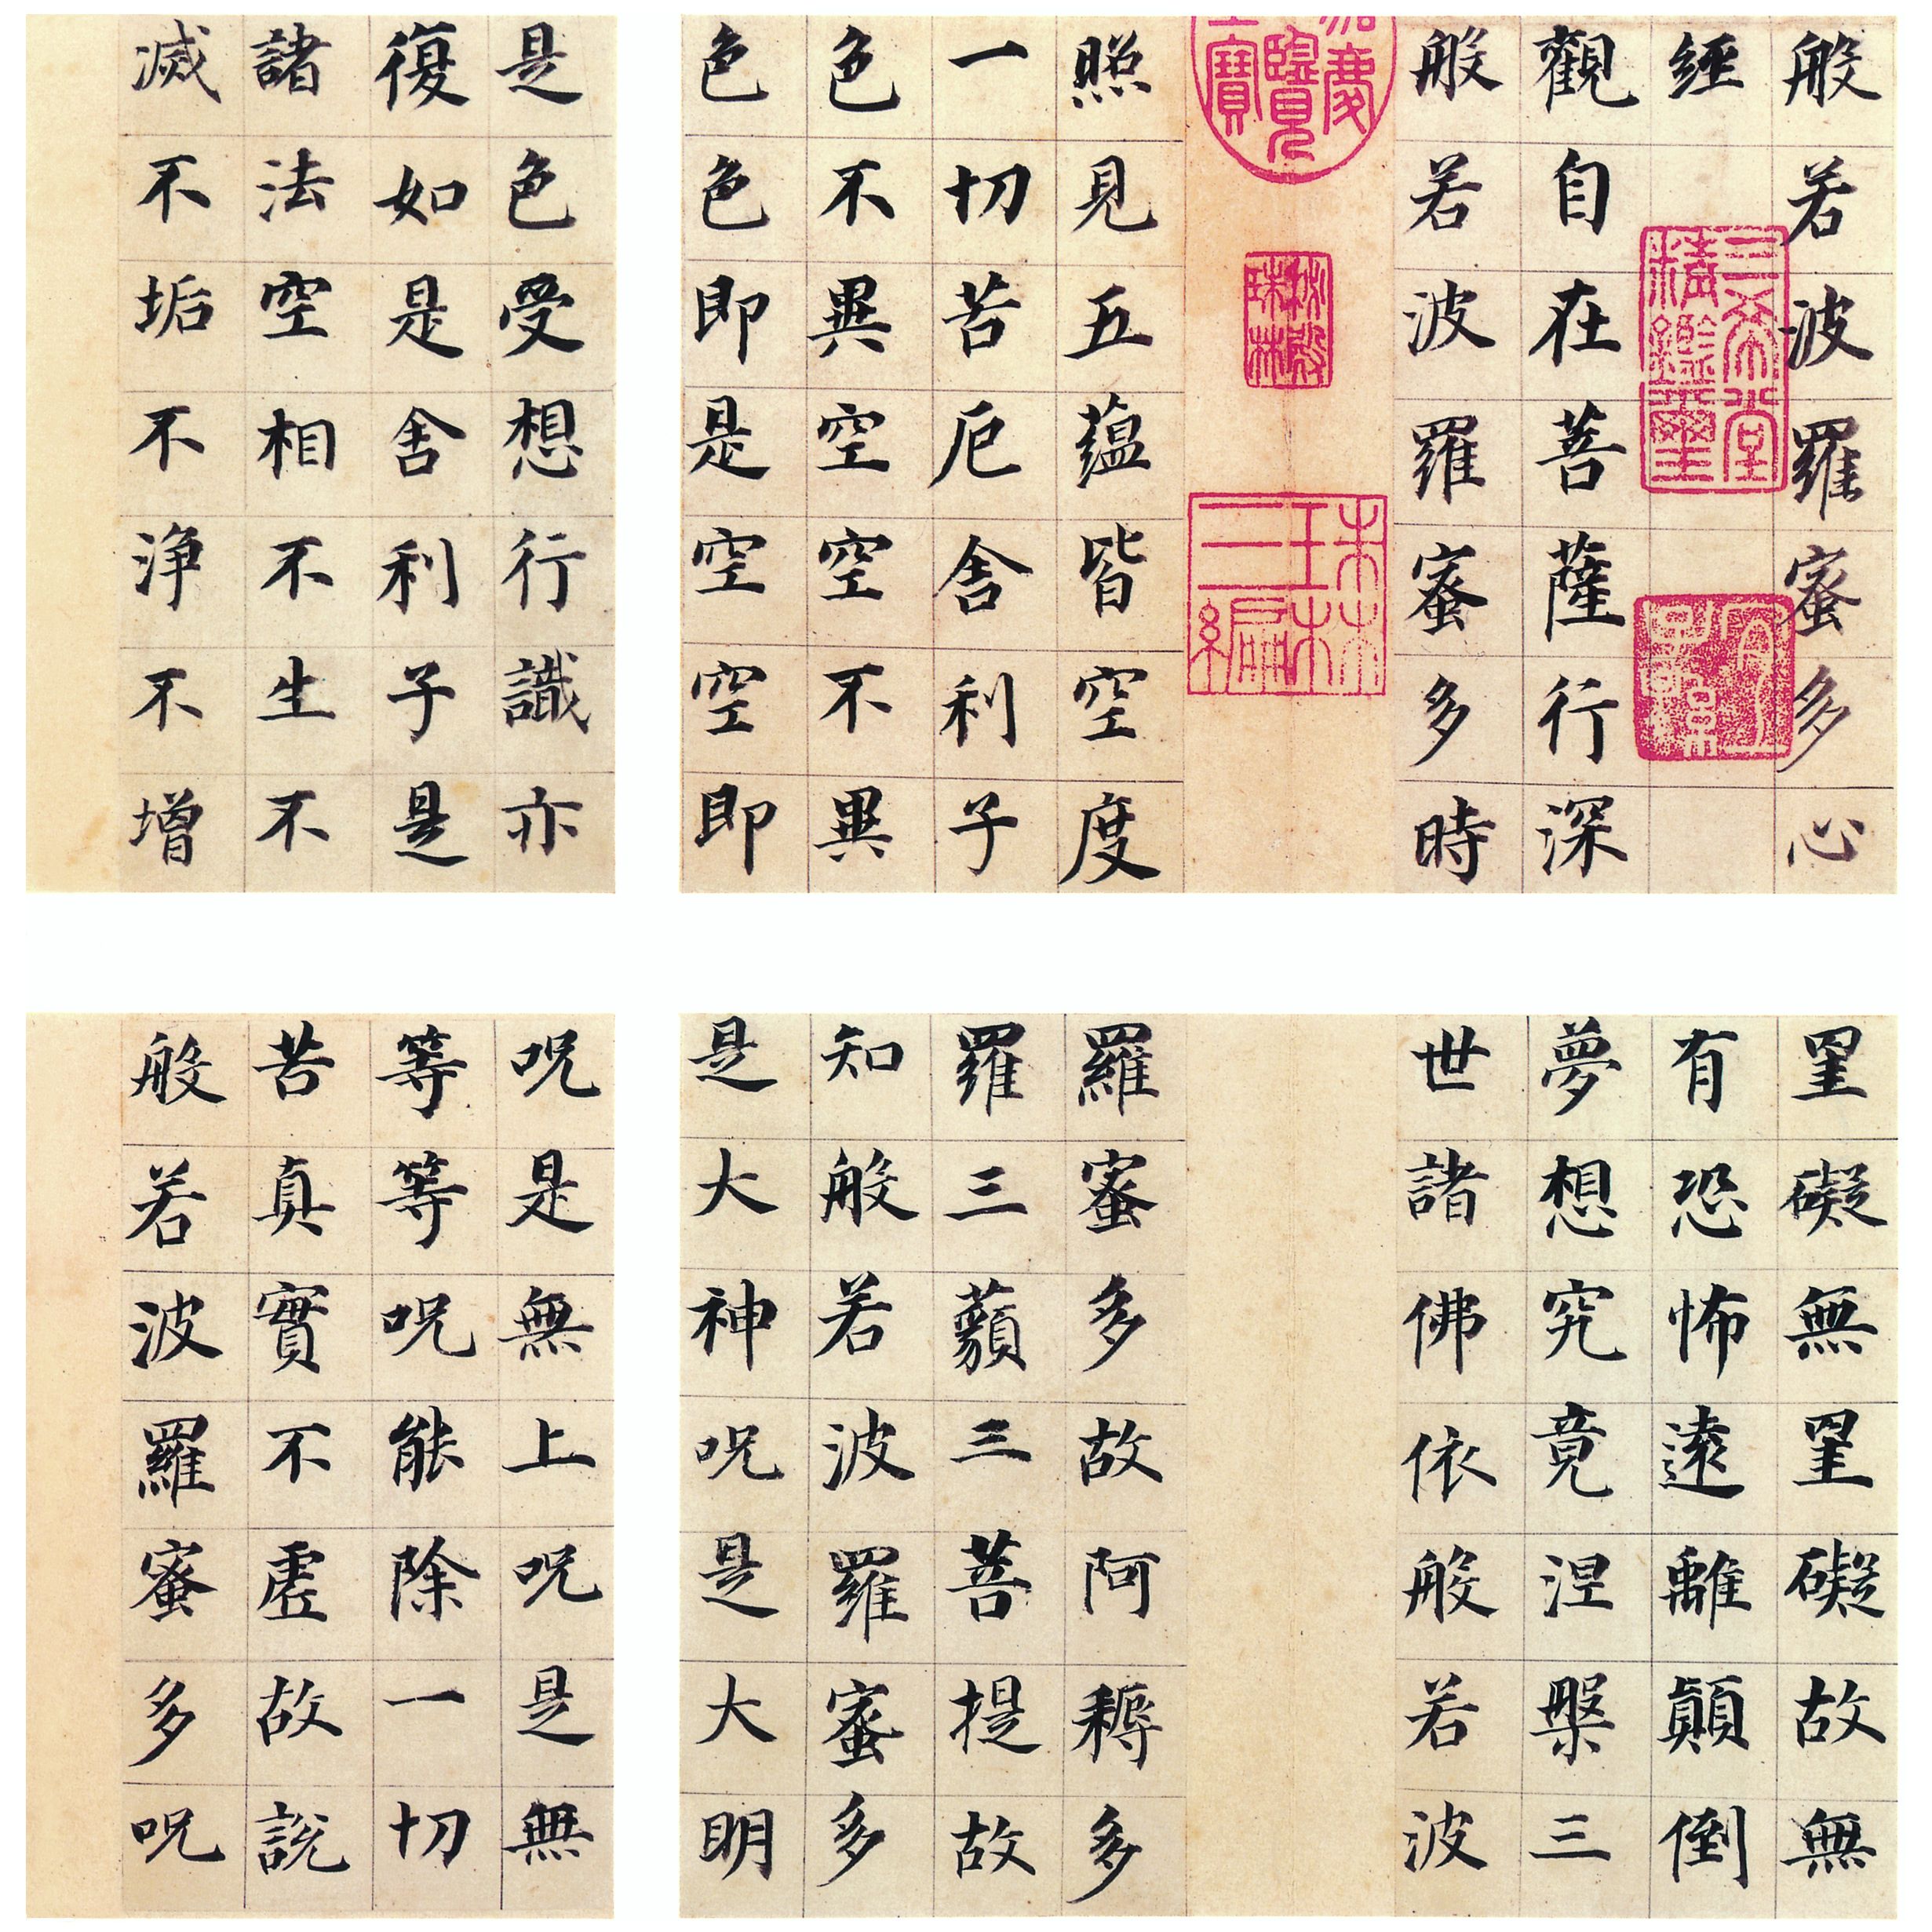 般若波羅蜜多心
經
觀自在菩薩行深
般若波羅蜜多時
三希堂精鑑璽
宜子孫
秘殿珠林
照見五蘊皆空度
一切苦厄舍利子
色不異空空不異
色色即是空空即
是色受想行識亦
復如是舍利子是
諸法空相不生不
滅不垢不浄不增
罣礙無罣礙故無
有恐怖遠離顛倒
夢想究竟涅槃三
世諸佛依般若波
羅蜜多故阿耨多
羅三藐三菩提故
知般若波羅蜜多
是大神呪是大明
呪是無上呪是無
等等呪能除一切
苦真實不虛故說
般若波羅蜜多呪